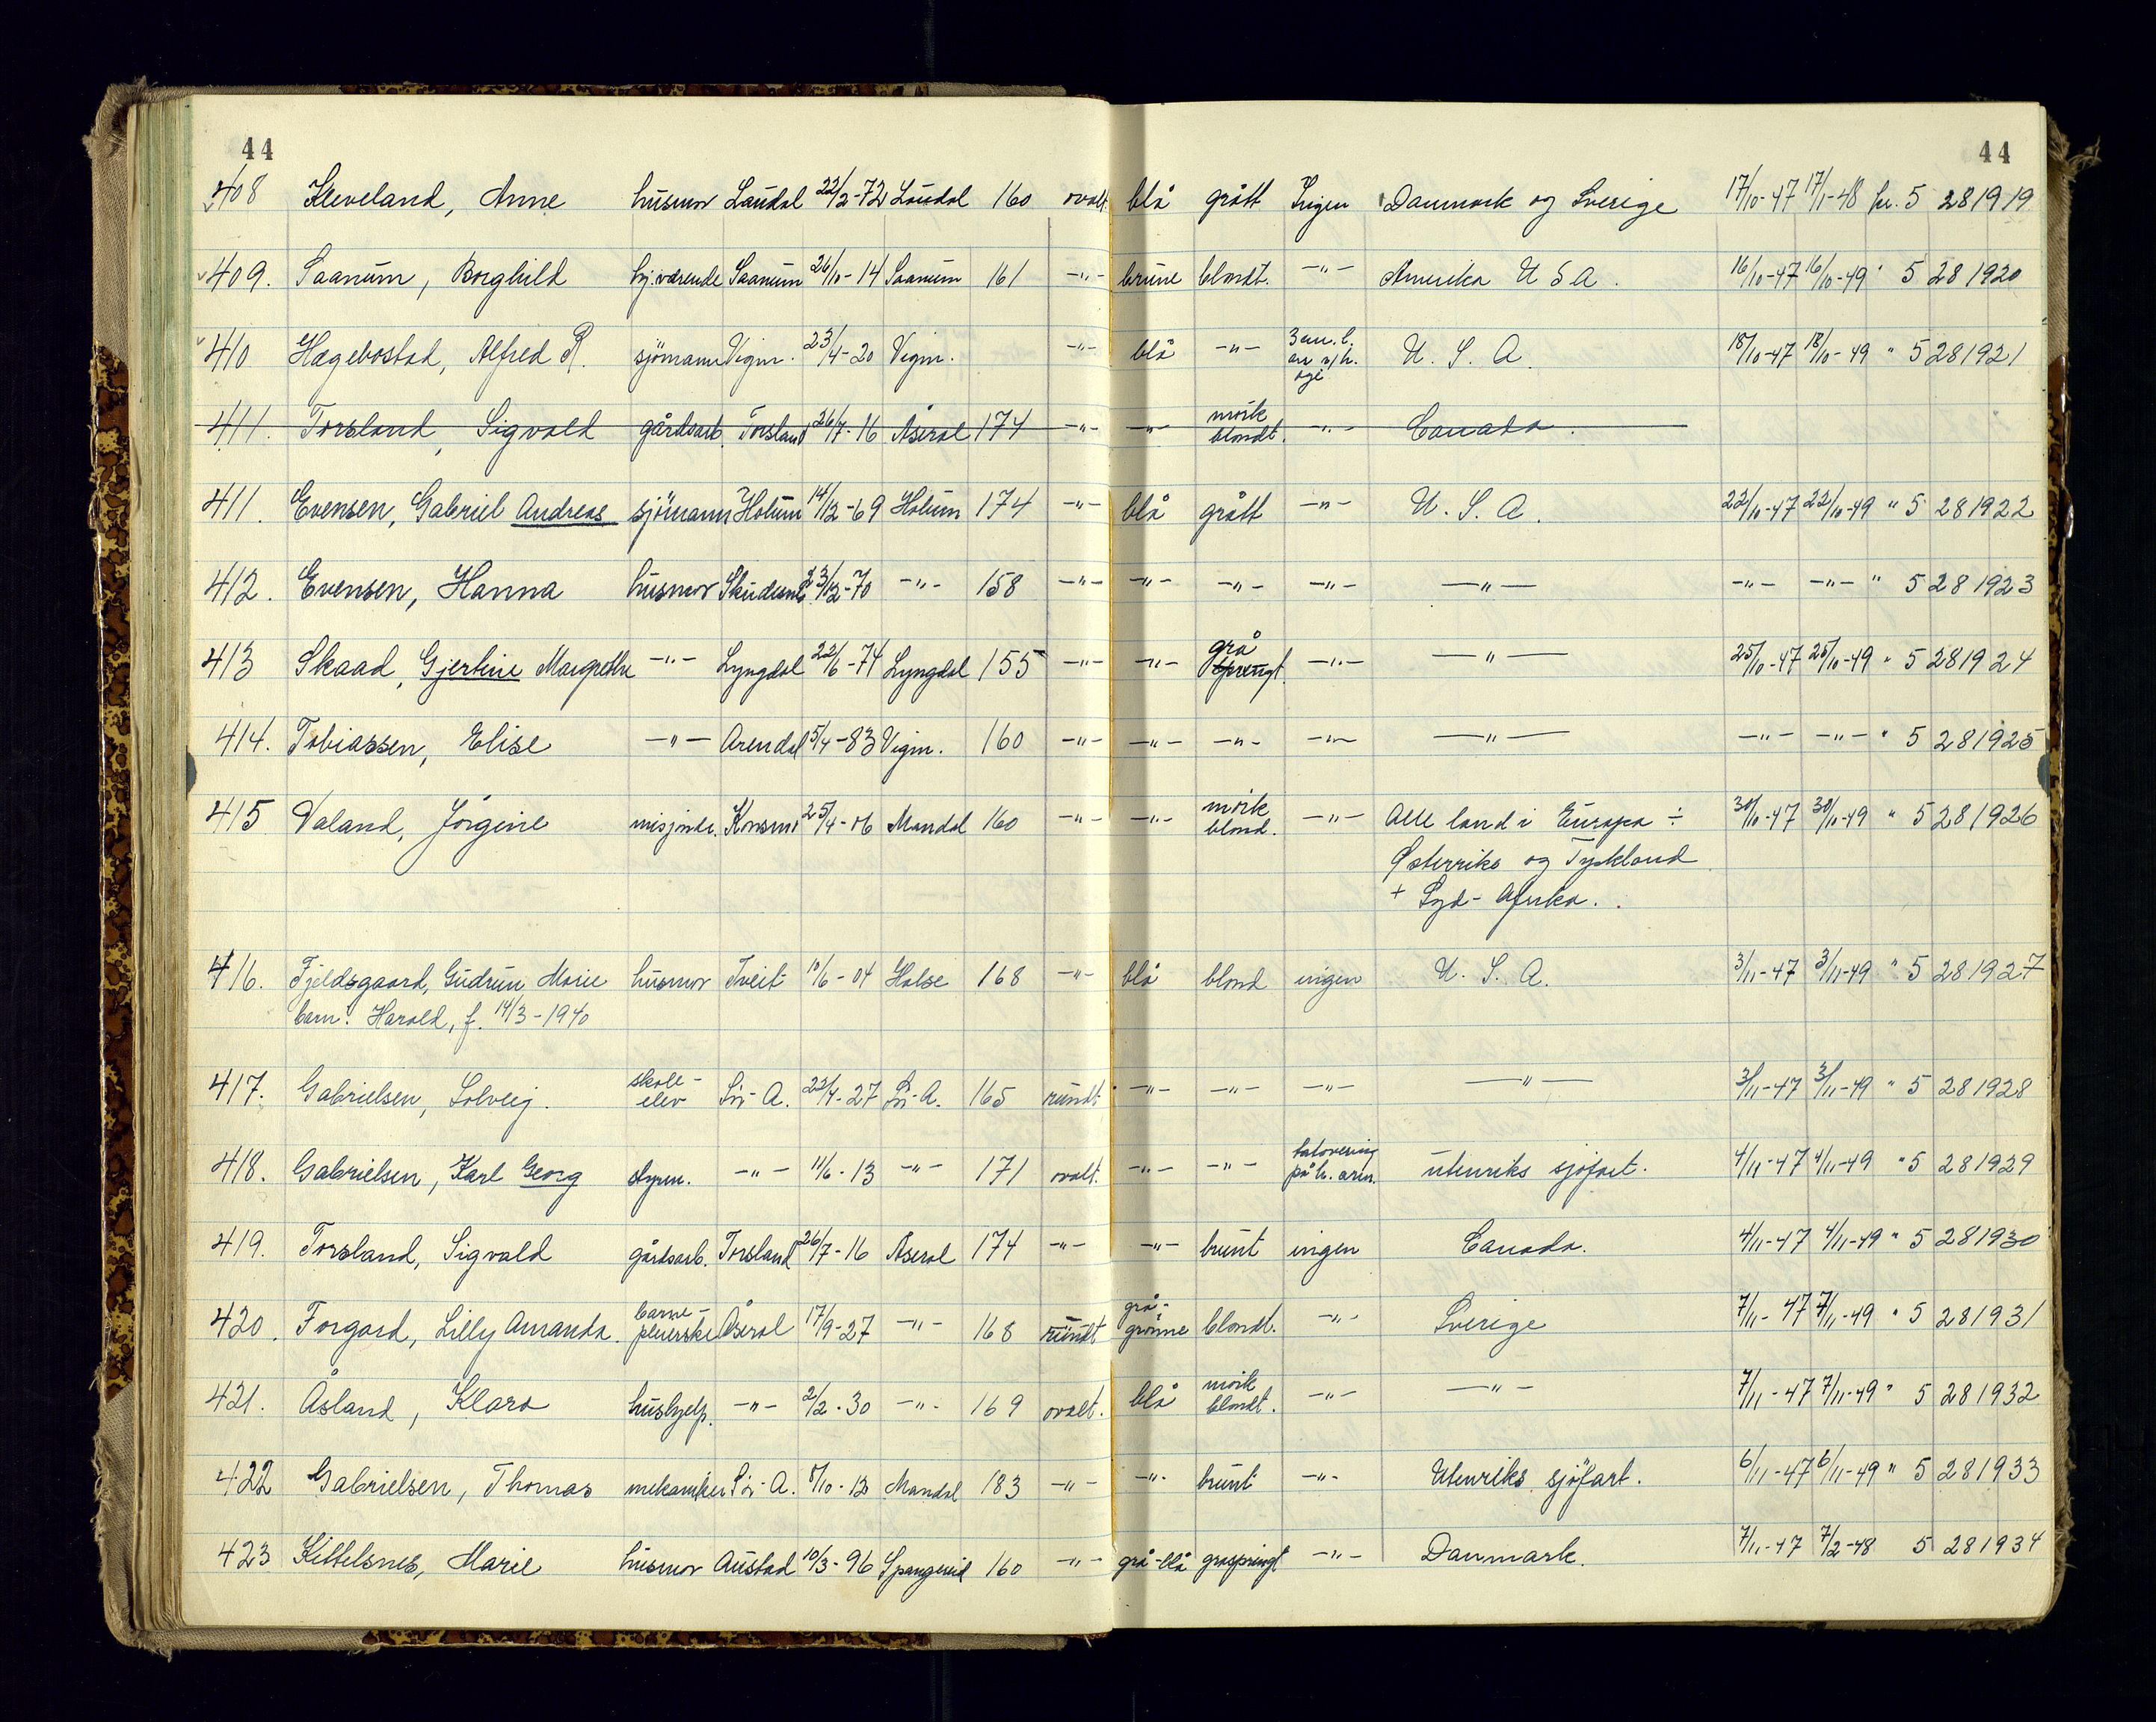 44 44
408 Kleveland, Anne husmor Laudal 22/2-72 Laudal 160 ovalt blå grått Ingen Danmark og Sverige 17/10-47 17/1-48 kr. 5 281919
409. Saanum, Borghild hj.værende Saanum 26/10-14 Saanum 161 -"- brune blondt. -"- Amerika U S A. 16/10-47 16/10-49 " 5 281920
410 Hægebostad, Alfred R. sjömann Vigm. 23/4-20 Vigm. -"- blå -"- U. S. A. 18/10-47 18/10-49 " 5 281921
411. Torsland, Sigvald gårdsarb. Torsland 26/7-16 Åseral 174 -"- -"- mörk blondt. -"- Canada.
411. Evensen, Gabriel Andreas sjömann Holum 14/12-69 Holum 174 -"- blå grått -"- U. S. A. 22/10-47 22/10-49 " 5 281922
412. Evensen, Hanna husmor 23/12-70 -"- 158 -"- -"- -"- -"- -"- -"- -"- " 5 281923
413 Skaad, Gjertine Margrethe -"- Lyngdal 22/6-74 Lyngdal 155 -"- -"- grå sprengt. -"- -"- 25/10-47 25/10-49 " 5 281924
414. Tobiassen, Elise -"- Arendal 5/4-83 Vigm. 160 -"- -"- -"- -"- -"- -"- -"- " 5 281925
415 Valand, Jörgine misjonær. Konsmo 25/4-06 Mandal 160 -"- -"- mörk blond. -"- Alle land i Europa ÷ 30/10-47 30/10-49 " 5 281926
Østerrike og Tyskland
+ Syd-Afrika.
416. Fjeldsgaard, Gudrun Marie husmor Tveit 10/6-04 Halse 168 -"- blå blond ingen U. S. A. 3/11-47 3/11-49 " 5 281927
barn: Harald, f. 14/3-1940
417. Gabrielsen, Solveig. skole-elev Sör-A. 22/4-27 Sör-A. 165 rundt -"- -"- -"- -"- 3/11-47 3/11-49 " 5 281928
418. Gabrielsen, Karl Georg styrm. -"- 11/6-13 -"- 171 ovalt. -"- -"- tatovering på h. arm. utenriks sjöfart. 4/11-47 4/11-49 " 5 281929
419. Torsland, Sigvald gårdsarb. Torsland 26/7-16 Åseral 174 -"- -"- brunt ingen Canada. 4/11-47 4/11-49 " 5 281930
420. Forgard, Lilly Amanda. barne-pleierske Åseral 17/9-27 -"- 168 rundt grå-grönne blondt. -"- Sverige 7/11-47 7/11-49 " 5 281931
421. Åsland, Klara hushjelp. -"- 2/2-30 -"- 169 ovalt. blå mörk blondt. -"- -"- 7/11-47 7/11-49 " 5 281932
422 Gabrielsen, Thomas mekaniker Sör-A. 8/10-12 Mandal 183 -"- -"- brunt -"- Utenriks sjöfart. 6/11-47 6/11-49 " 5 281933
423 Kittelsnes, Marie husmor Austad 10/3-96 Spangereid 160 -"- grå-blå gråsprengt -"- Danmark. 7/11-47 7/2-48 5 281934